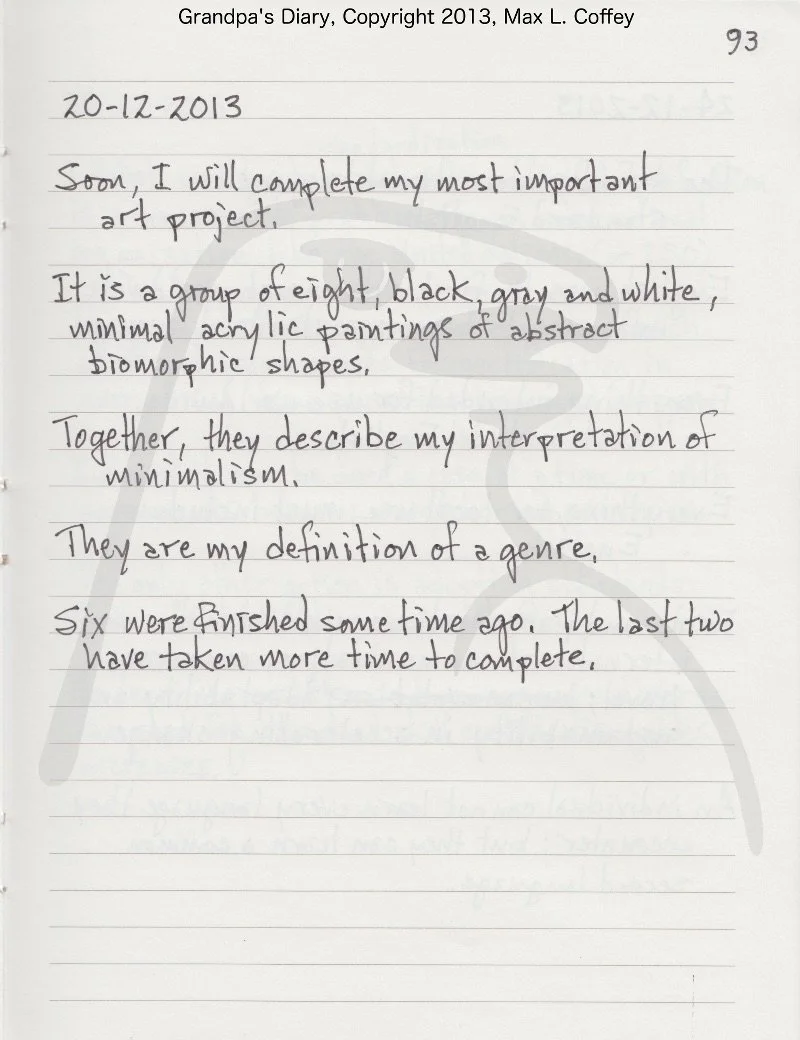 Grandpa's Diary, Copyright 2013, Max L. Coffey
93
20-12-2013
Soon, I will complete my most important
art project.
It is a group of eight, black, gray and white,
minimal acrylic paintings of abstract
biomorphic shapes.
Together, they describe my interpretation of
minimalism.
They are my definition of a genre.
Six were finished some time ago. The last two
have taken more time to complete.